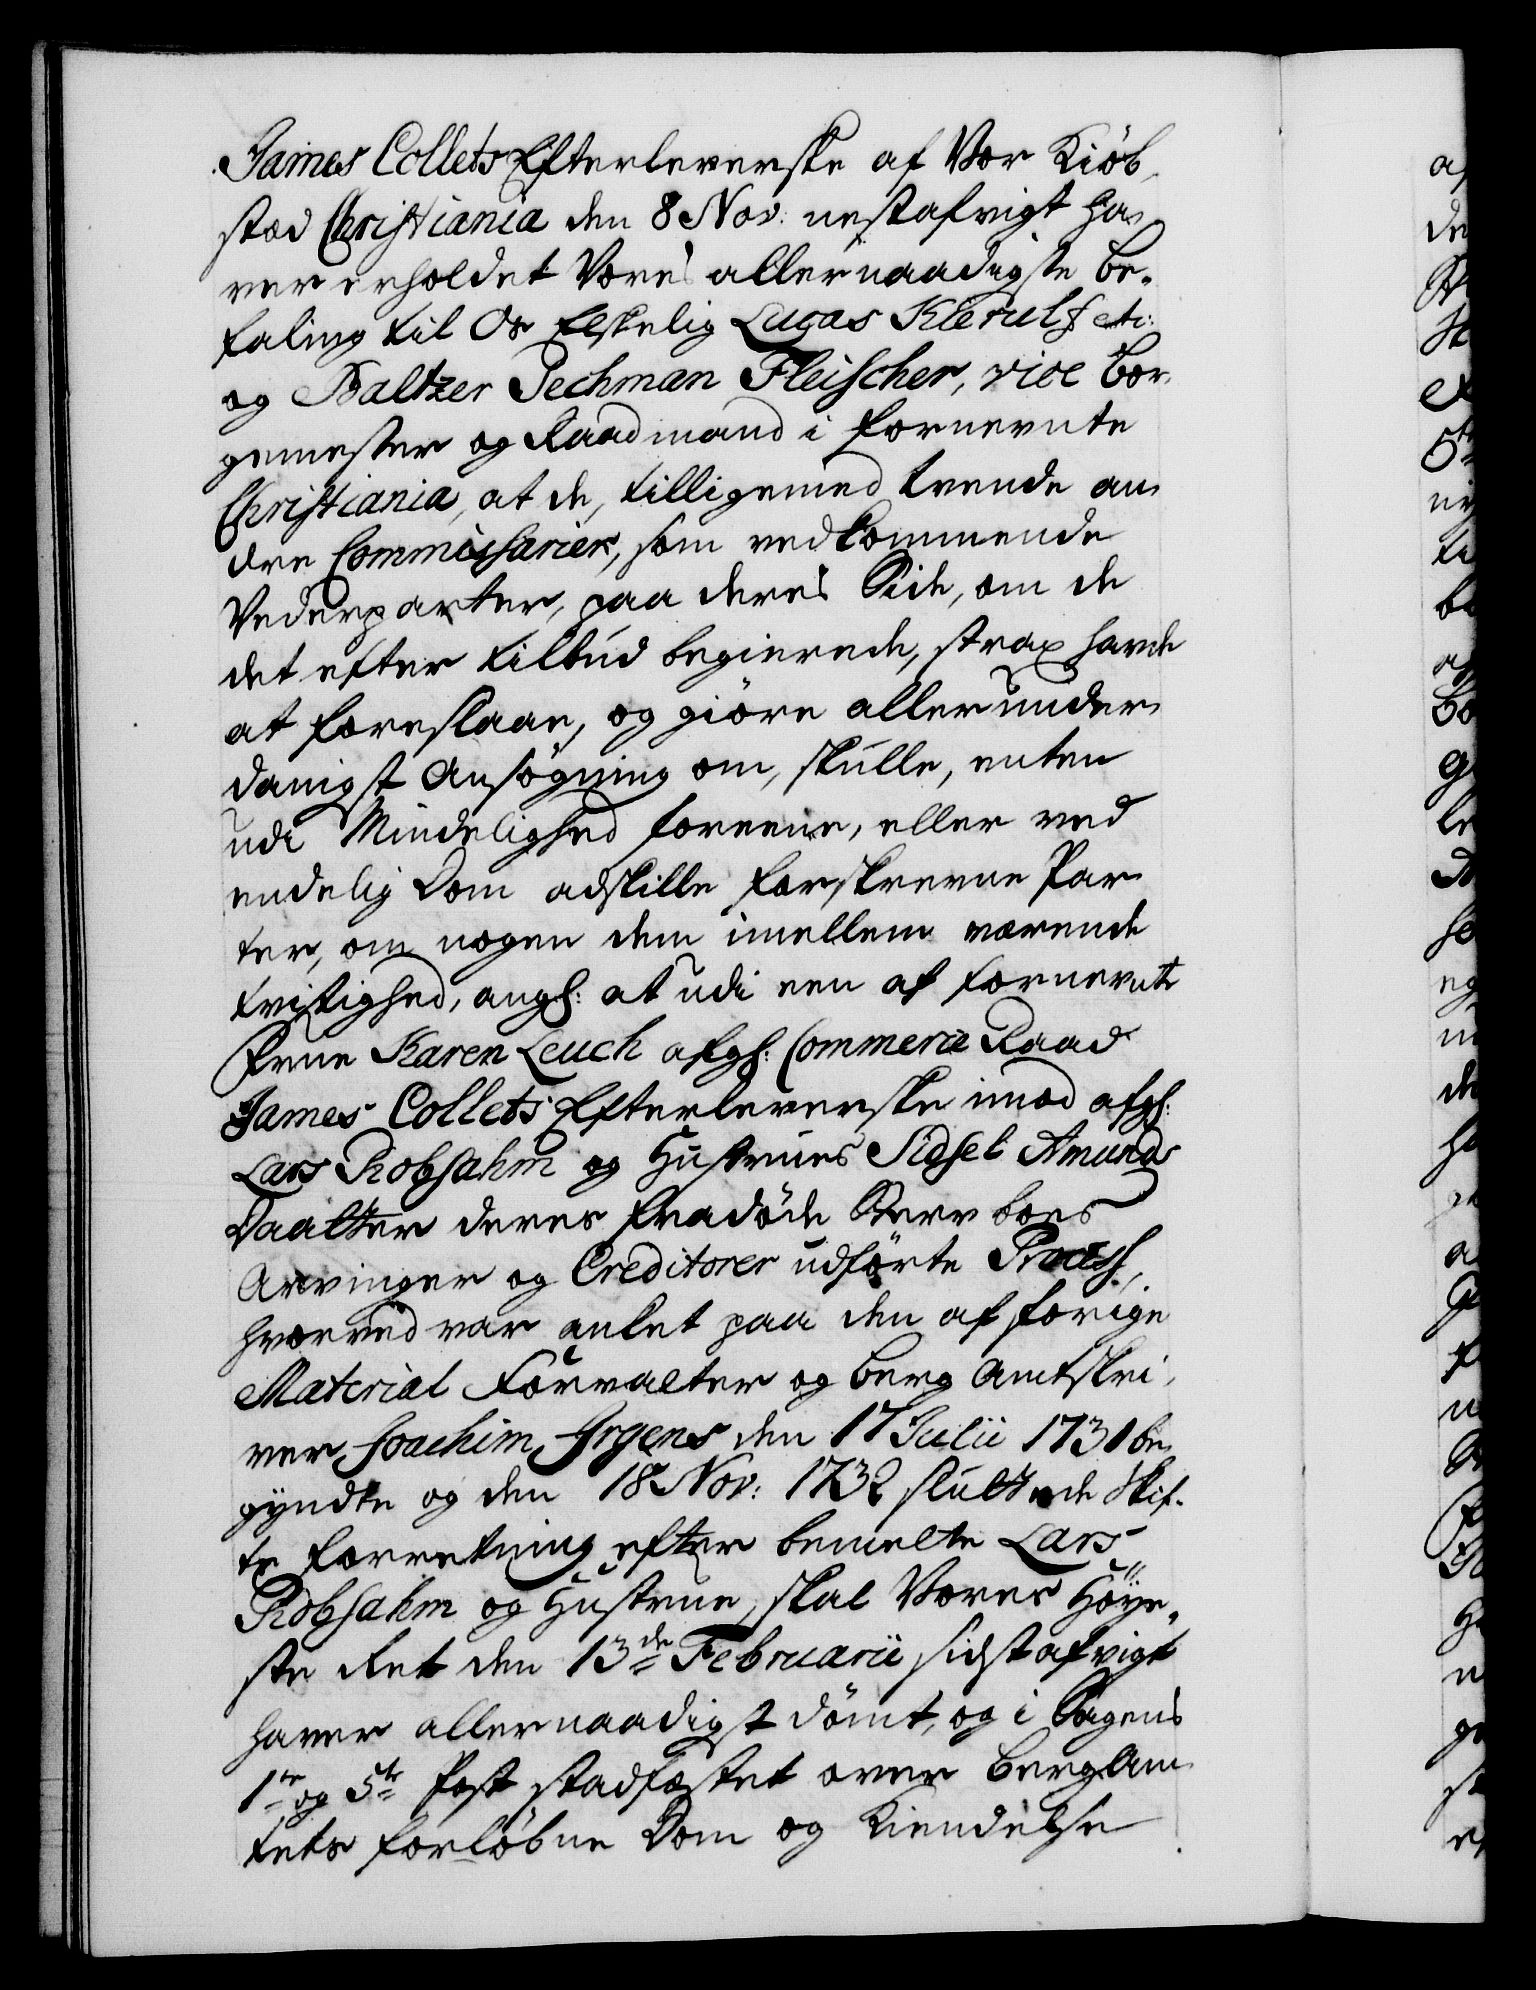 James Collets Efterleverske af Vor Kiöb,
stæd Christiania den 8 Nov: nestafvigt ha,
ver erholdet Vores allernaadigste Be,
faling til Os Elskelig Lucas Kierulf etc:
og Baltzer Sechman Fleischer, vice Bor,
gemester og Raadmand i fornevnte
Christiania, at de, tilligemed tvende an,
dre Commissarier, som vedkommende
Vederparter, paa deres Side, om de
det efter tilbud begierede, strax havde
at foreslaae, og giöre allerunder,
danigst Ansögning om, skulle, enten
udi Mindelighed foreene, eller ved
endelig Dom adskille forskrevne Par,
ter, om nogen dem imellem værende
tvistighed, angl: at udi een af fornevnte
Frue Karen Leuch afgl: Commerce Raad
James Collets Efterleverske imod afgl:
Lars Robsahm og Hustrues Sidsel Amunds
Daatter deres fradöde Sterv boes
Arvinger og Creditorer udförte Process,
hvorved var anket paa den af forige
Material Forvalter og Berg Amtskri,
ver Joachim Jrgens den 17 Julii 1731 be,
gyndte og den 18 Nov: 1732 sluttede Skif,
te forretning efter bemelte Lars
Robsahm og Hustrue, skal Vores Höye,
ste Ret den 13de Februarii sidst afvigt
haver allernaadigst dömt, og i Sagens
1te og 5te Post stadfæstet over Bergam,
tets forlöbne Dom og Kiendelse